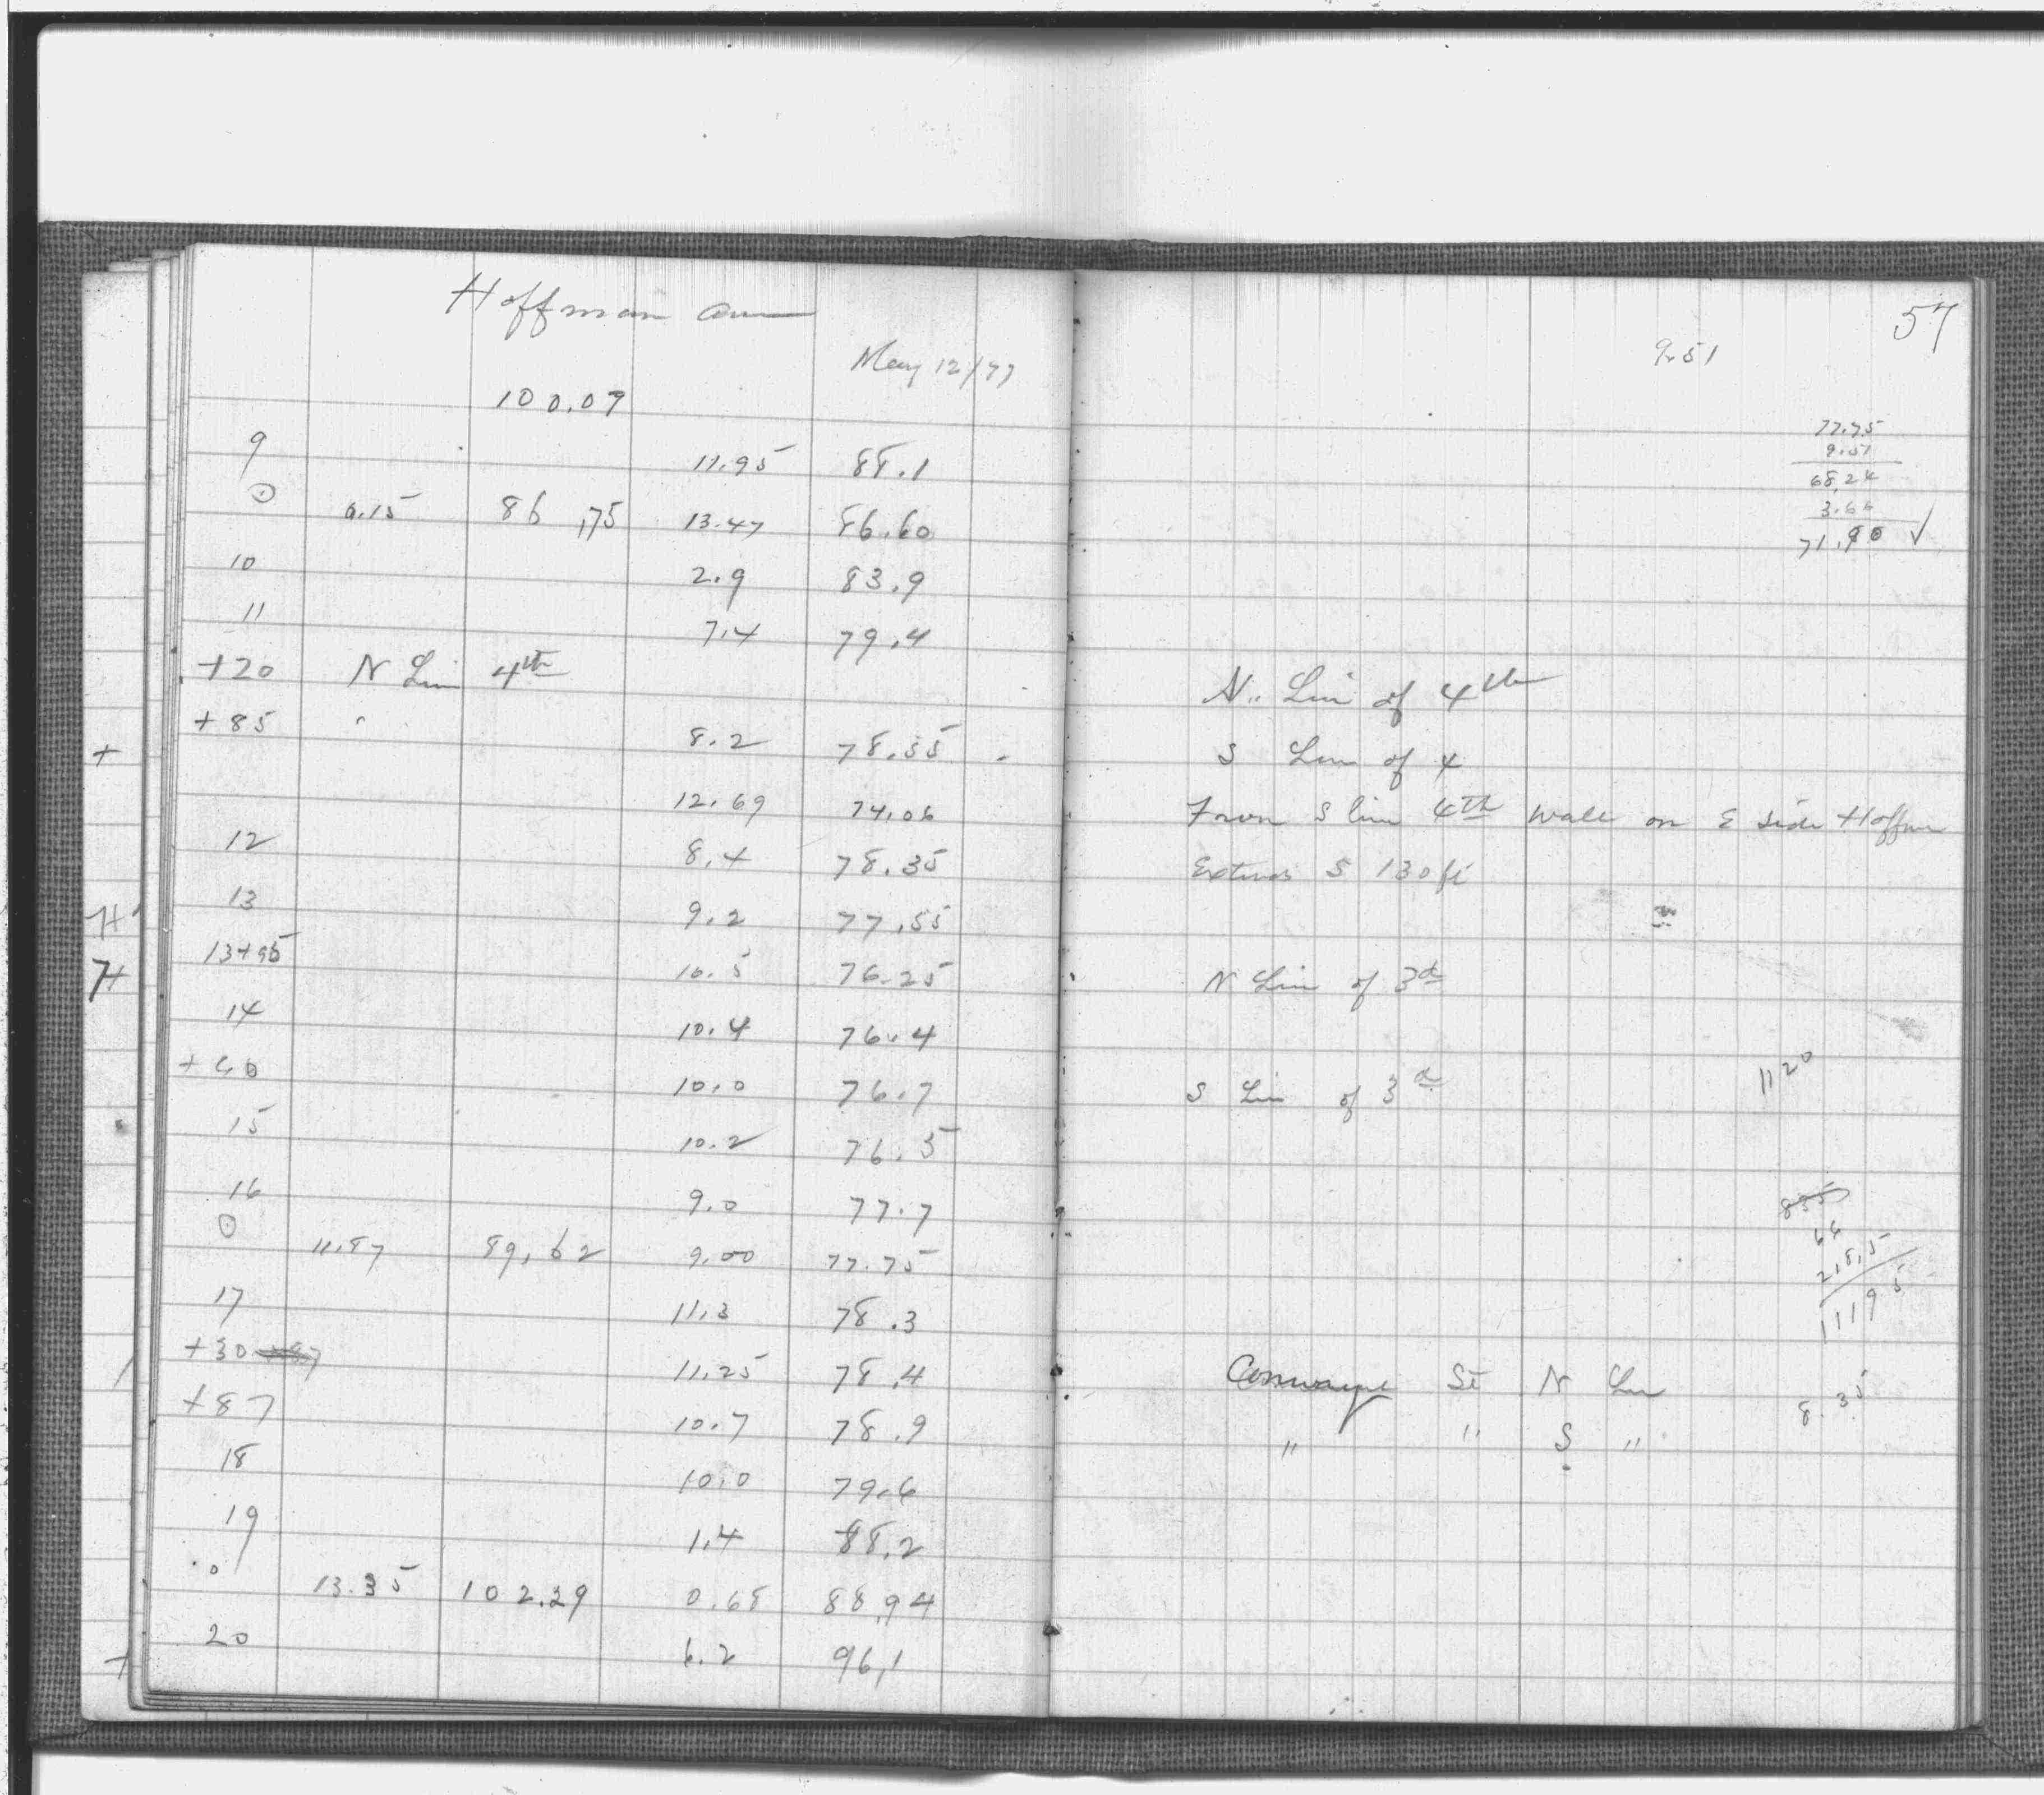 Hoffman
May 12/
57
9.51
100.07
9 11.95 88.1
⊙ 0.15 86.75 13.47 86.60
10 2.9 83.9
11 7.4 79.4
+20 N Lin 4th N. Lin of 4th
+85 " 8.2 78.55 S Lin of 4
12.69 74.06 From S line 4th wall on E side
12 8.4 78.35 S 130 ft
13 9.2 77.55
13+95 10.5 76.25 N Lin of 3d
14 10.4 76.4
+60 10.0 76.7 S Lin of 3d
15 10.2 76.5
16 9.0 77.7
⊙ 11.87 89.62 9.00 77.75
17 11.3 78.3
+30 11.25 78.4 St N Lin
+87 10.7 78.9 " " S "
18 10.0 79.6
19 1.4 88.2
⊙ 13.35 102.29 0.68 88.94
20 6.2 96.1
77.75
9.51
68.24
3.66
71.90 ✓
1120
855
66
218.5
1119 5
8.35